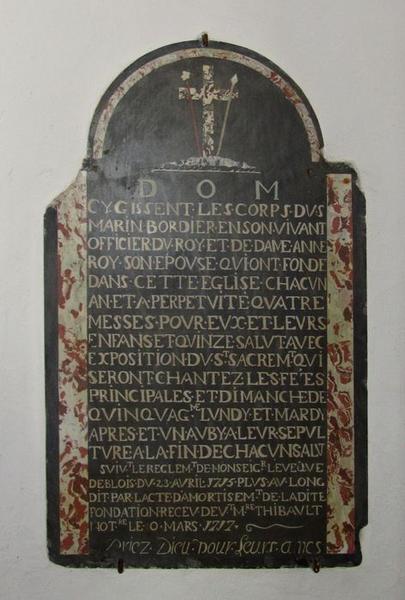 D O M
CY·GISSENT·LES·CORPS·DUS
MARIN·BORDIER·EN·SON·VIVANT
OFFICIER·DV·ROY·ET·DE·DAME·ANNE
ROY·SON·EPOVSE·QVI·ONT·FONDE
DANS·CETTE·EGLISE·CHACVN
AN·ET·A·PERPETVITE·QVATRE
MESSES·POVR·EVX·ET·LEVRS
ENFANS·ET·QVINZE·SALVT·AVEC
EXPOSITION·DV·St·SACREMt·QVI
SERONT·CHANTEZ·LES·FÉES
PRINCIPALES·ET·DIMANCHE·DE
QVINQVAG·ME·LVNDY·ET·MARDY
APRES·ET·VN·AVBY·A·LEVR·SEPVL
TVRE·A·LA·FIN·DE·CHACVN·SALVT
SUIVt·LE·REGLEMt·DE·MONSEIGR·LEVEQVE
DE·BLOIS·DU·23·AVRIL·1715·PLVS·AV·LONG
DIT·PAR·LACTE·DAMORTISEMt·DE·LADITE
FONDATION·RECEV·DEVt·MRE·THIBAVLT
NOTRE·LE·MARS·1717·
Priez·Dieu·pour·leurs·ames